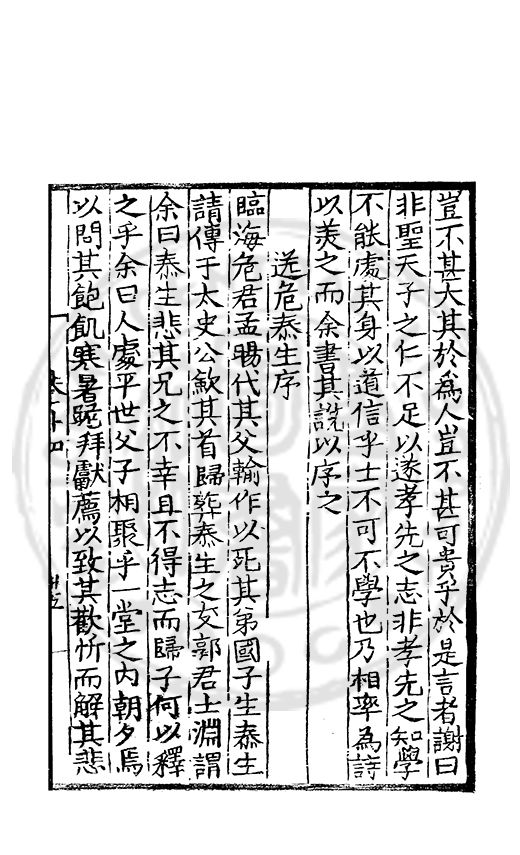 豈不甚大其於爲人豈不甚可貴乎於是言者謝曰
非聖天子之仁不足以遂孝先之志非孝先之知學
不能處其身以道信乎士不可不學也乃相率為詩
以羙之而余書其說以序之
送危泰生序
臨海危君孟暘代其父輸作以死其第國子生泰生
請傳于太史公歛其首歸葬泰生之友郭君士淵謂
余曰泰生悲其兄之不幸且不得志而歸子何以釋
之乎余曰人處平世父子相聚乎一堂之内朝夕焉
以問其飽飢寒暑跪拜獻薦以致其歡忻而解其悲